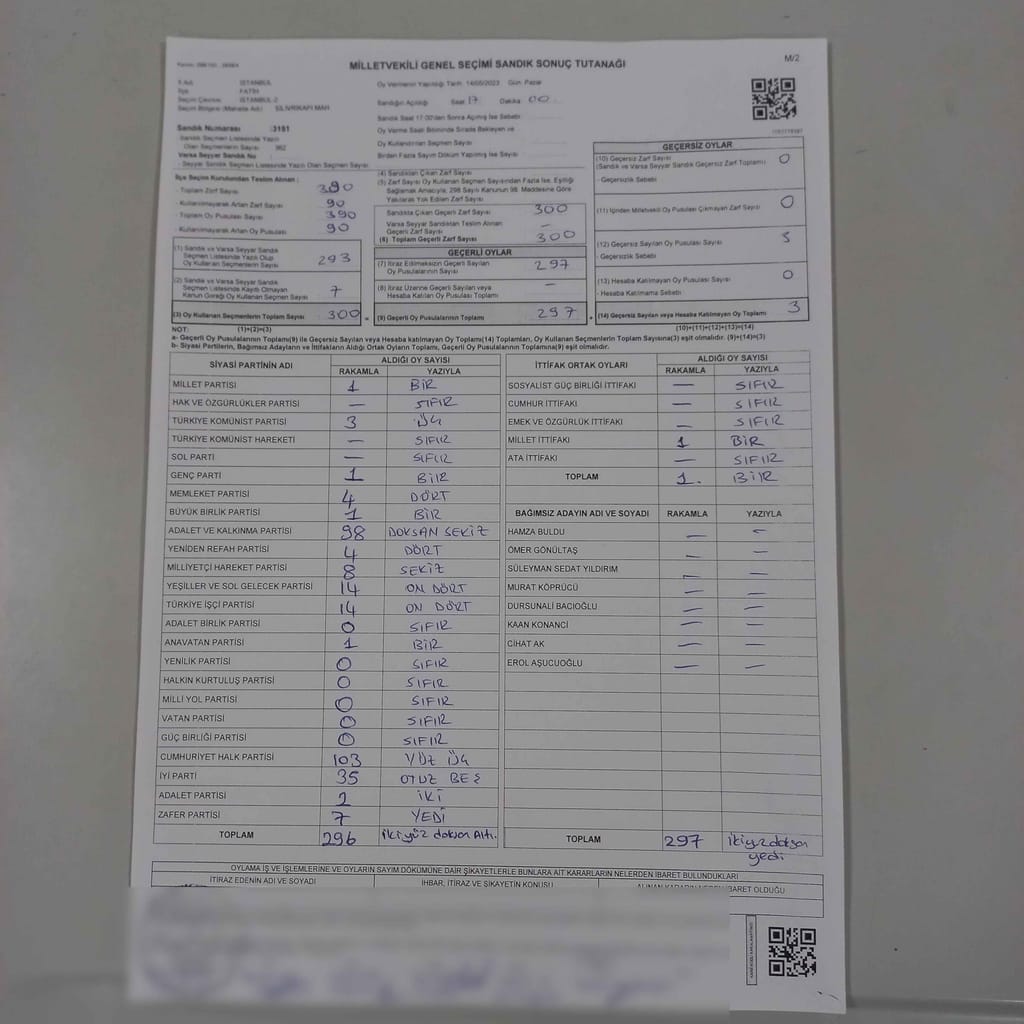 M/2
MİLLETVEKİLİ GENEL SEÇİMİ SANDIK SONUÇ TUTANAĞI
İSTANBUL
FATİH
İSTANBUL-2
SİLİVRİKAPI MAH
Oy Vermenin Yapıldığı Tarih: 14/05/2023 Gün: Pazar
Sandığın Açıldığı Saat 17 Dakika 00
Sandık Saat 17:00'dan Sonra Açılmış İse Sebebi
Oy Verme Saati Bitiminde Sırada Bekleyen ve
Oy Kullandırılan Seçmen Sayısı
Birden Fazla Sayım Döküm Yapılmış İse Sayısı
Sandık Numarası :3151
- Sandık Seçmen Listesinde Yazılı
Olan Seçmenlerin Sayısı
Varsa Seyyar Sandık No
- Seyyar Sandık Seçmen Listesinde Yazılı Olan Seçmen Sayısı
İlçe Seçim Kurulundan Teslim Alınan:
- Toplam Zarf Sayısı 390
- Kullanılmayarak Artan Zarf Sayısı 90
- Toplam Oy Pusulası Sayısı 390
- Kullanılmayarak Artan Oy Pusulası 90
(1) Sandık ve Varsa Seyyar Sandık
Seçmen Listesinde Yazılı Olup
Oy Kullanan Seçmenlerin Sayısı 293
(2) Sandık ve Varsa Seyyar Sandık
Seçmen Listesinde Kaydı Olmayan
Kanun Gereği Oy Kullanan Seçmen Sayısı 7
(3) Oy Kullanan Seçmenlerin Toplam Sayısı 300
(4) Sandıktan Çıkan Zarf Sayısı
(5) Zarf Sayısı Oy Kullanan Seçmen Sayısından Fazla İse, Eşitliği
Sağlamak Amacıyla; 298 Sayılı Kanunun 98. Maddesine Göre
Yakılarak Yok Edilen Zarf Sayısı
Sandıkta Çıkan Geçerli Zarf Sayısı 300
Varsa Seyyar Sandıktan Teslim Alınan
Geçerli Zarf Sayısı —
(6) Toplam Geçerli Zarf Sayısı 300
GEÇERLİ OYLAR
(7) İtiraz Edilmeksizin Geçerli Sayılan
Oy Pusulalarının Sayısı 297
(8) İtiraz Üzerine Geçerli Sayılan veya
Hesaba Katılan Oy Pusulası Toplamı —
(9) Geçerli Oy Pusulalarının Toplamı 297
GEÇERSİZ OYLAR
(10) Geçersiz Zarf Sayısı 0
(Sandık ve Varsa Seyyar Sandık Geçersiz Zarf Toplamı)
- Geçersizlik Sebebi
(11) İçinden Milletvekili Oy Pusulası Çıkmayan Zarf Sayısı 0
(12) Geçersiz Sayılan Oy Pusulası Sayısı 3
- Geçersizlik Sebebi
(13) Hesaba Katılmayan Oy Pusulası Sayısı 0
- Hesaba Katılmama Sebebi
(14) Geçersiz Sayılan veya Hesaba Katılmayan Oy Toplamı 3
NOT: (1)+(2)=(3) (10)+(11)+(12)+(13)=(14)
a- Geçerli Oy Pusulaları(9) ile Geçersiz Sayılan veya Hesaba katılmayan Oy Toplamı(14) Toplamları, Oy Kullanan Seçmenlerin Toplam Sayısına(3) eşit olmalıdır. (9)+(14)=(3)
b- Siyasi Partilerin, Bağımsız Adayların ve İttifakların Aldığı Ortak Oyların Toplamı, Geçerli Oy Pusulalarının Toplamına(9) eşit olmalıdır.
SİYASİ PARTİNİN ADI ALDIĞI OY SAYISI
RAKAMLA YAZIYLA
MİLLET PARTİSİ 1 BİR
HAK VE ÖZGÜRLÜKLER PARTİSİ — SIFIR
TÜRKİYE KOMÜNİST PARTİSİ 3 ÜÇ
TÜRKİYE KOMÜNİST HAREKETİ — SIFIR
SOL PARTİ — SIFIR
GENÇ PARTİ 1 BİR
MEMLEKET PARTİSİ 4 DÖRT
BÜYÜK BİRLİK PARTİSİ 1 BİR
ADALET VE KALKINMA PARTİSİ 98 DOKSAN SEKİZ
YENİDEN REFAH PARTİSİ 4 DÖRT
MİLLİYETÇİ HAREKET PARTİSİ 8 SEKİZ
YEŞİLLER VE SOL GELECEK PARTİSİ 14 ON DÖRT
TÜRKİYE İŞÇİ PARTİSİ 14 ON DÖRT
ADALET BİRLİK PARTİSİ 0 SIFIR
ANAVATAN PARTİSİ 1 BİR
YENİLİK PARTİSİ 0 SIFIR
HALKIN KURTULUŞ PARTİSİ 0 SIFIR
MİLLİ YOL PARTİSİ 0 SIFIR
VATAN PARTİSİ 0 SIFIR
GÜÇ BİRLİĞİ PARTİSİ 0 SIFIR
CUMHURİYET HALK PARTİSİ 103 YÜZ ÜÇ
İYİ PARTİ 35 OTUZ BEŞ
ADALET PARTİSİ 2 İKİ
ZAFER PARTİSİ 7 YEDİ
TOPLAM 296 iki yüz doksan Altı.
İTTİFAK ORTAK OYLARI ALDIĞI OY SAYISI
RAKAMLA YAZIYLA
SOSYALİST GÜÇ BİRLİĞİ İTTİFAKI — SIFIR
CUMHUR İTTİFAKI — SIFIR
EMEK VE ÖZGÜRLÜK İTTİFAKI — SIFIR
MİLLET İTTİFAKI 1 BİR
ATA İTTİFAKI — SIFIR
TOPLAM 1. BİR
BAĞIMSIZ ADAYIN ADI VE SOYADI RAKAMLA YAZIYLA
HAMZA BULDU — —
ÖMER GÖNÜLTAŞ — —
SÜLEYMAN SEDAT YILDIRIM — —
MURAT KÖPRÜCÜ — —
DURSUNALİ BACIOĞLU — —
KAAN KONANCİ — —
CİHAT AK — —
EROL AŞUCUOĞLU — —
TOPLAM 297 iki yüz doksan yedi
OYLAMA İŞ VE İŞLEMLERİNE VE OYLARIN SAYIM DÖKÜMÜNE DAİR ŞİKAYETLERLE BUNLARA AİT KARARLARIN NELERDEN İBARET BULUNDUKLARI
İTİRAZ EDENİN ADI VE SOYADI İHBAR, İTİRAZ VE ŞİKAYETİN KONUSU ALINAN KARARIN NEDEN İBARET OLDUĞU